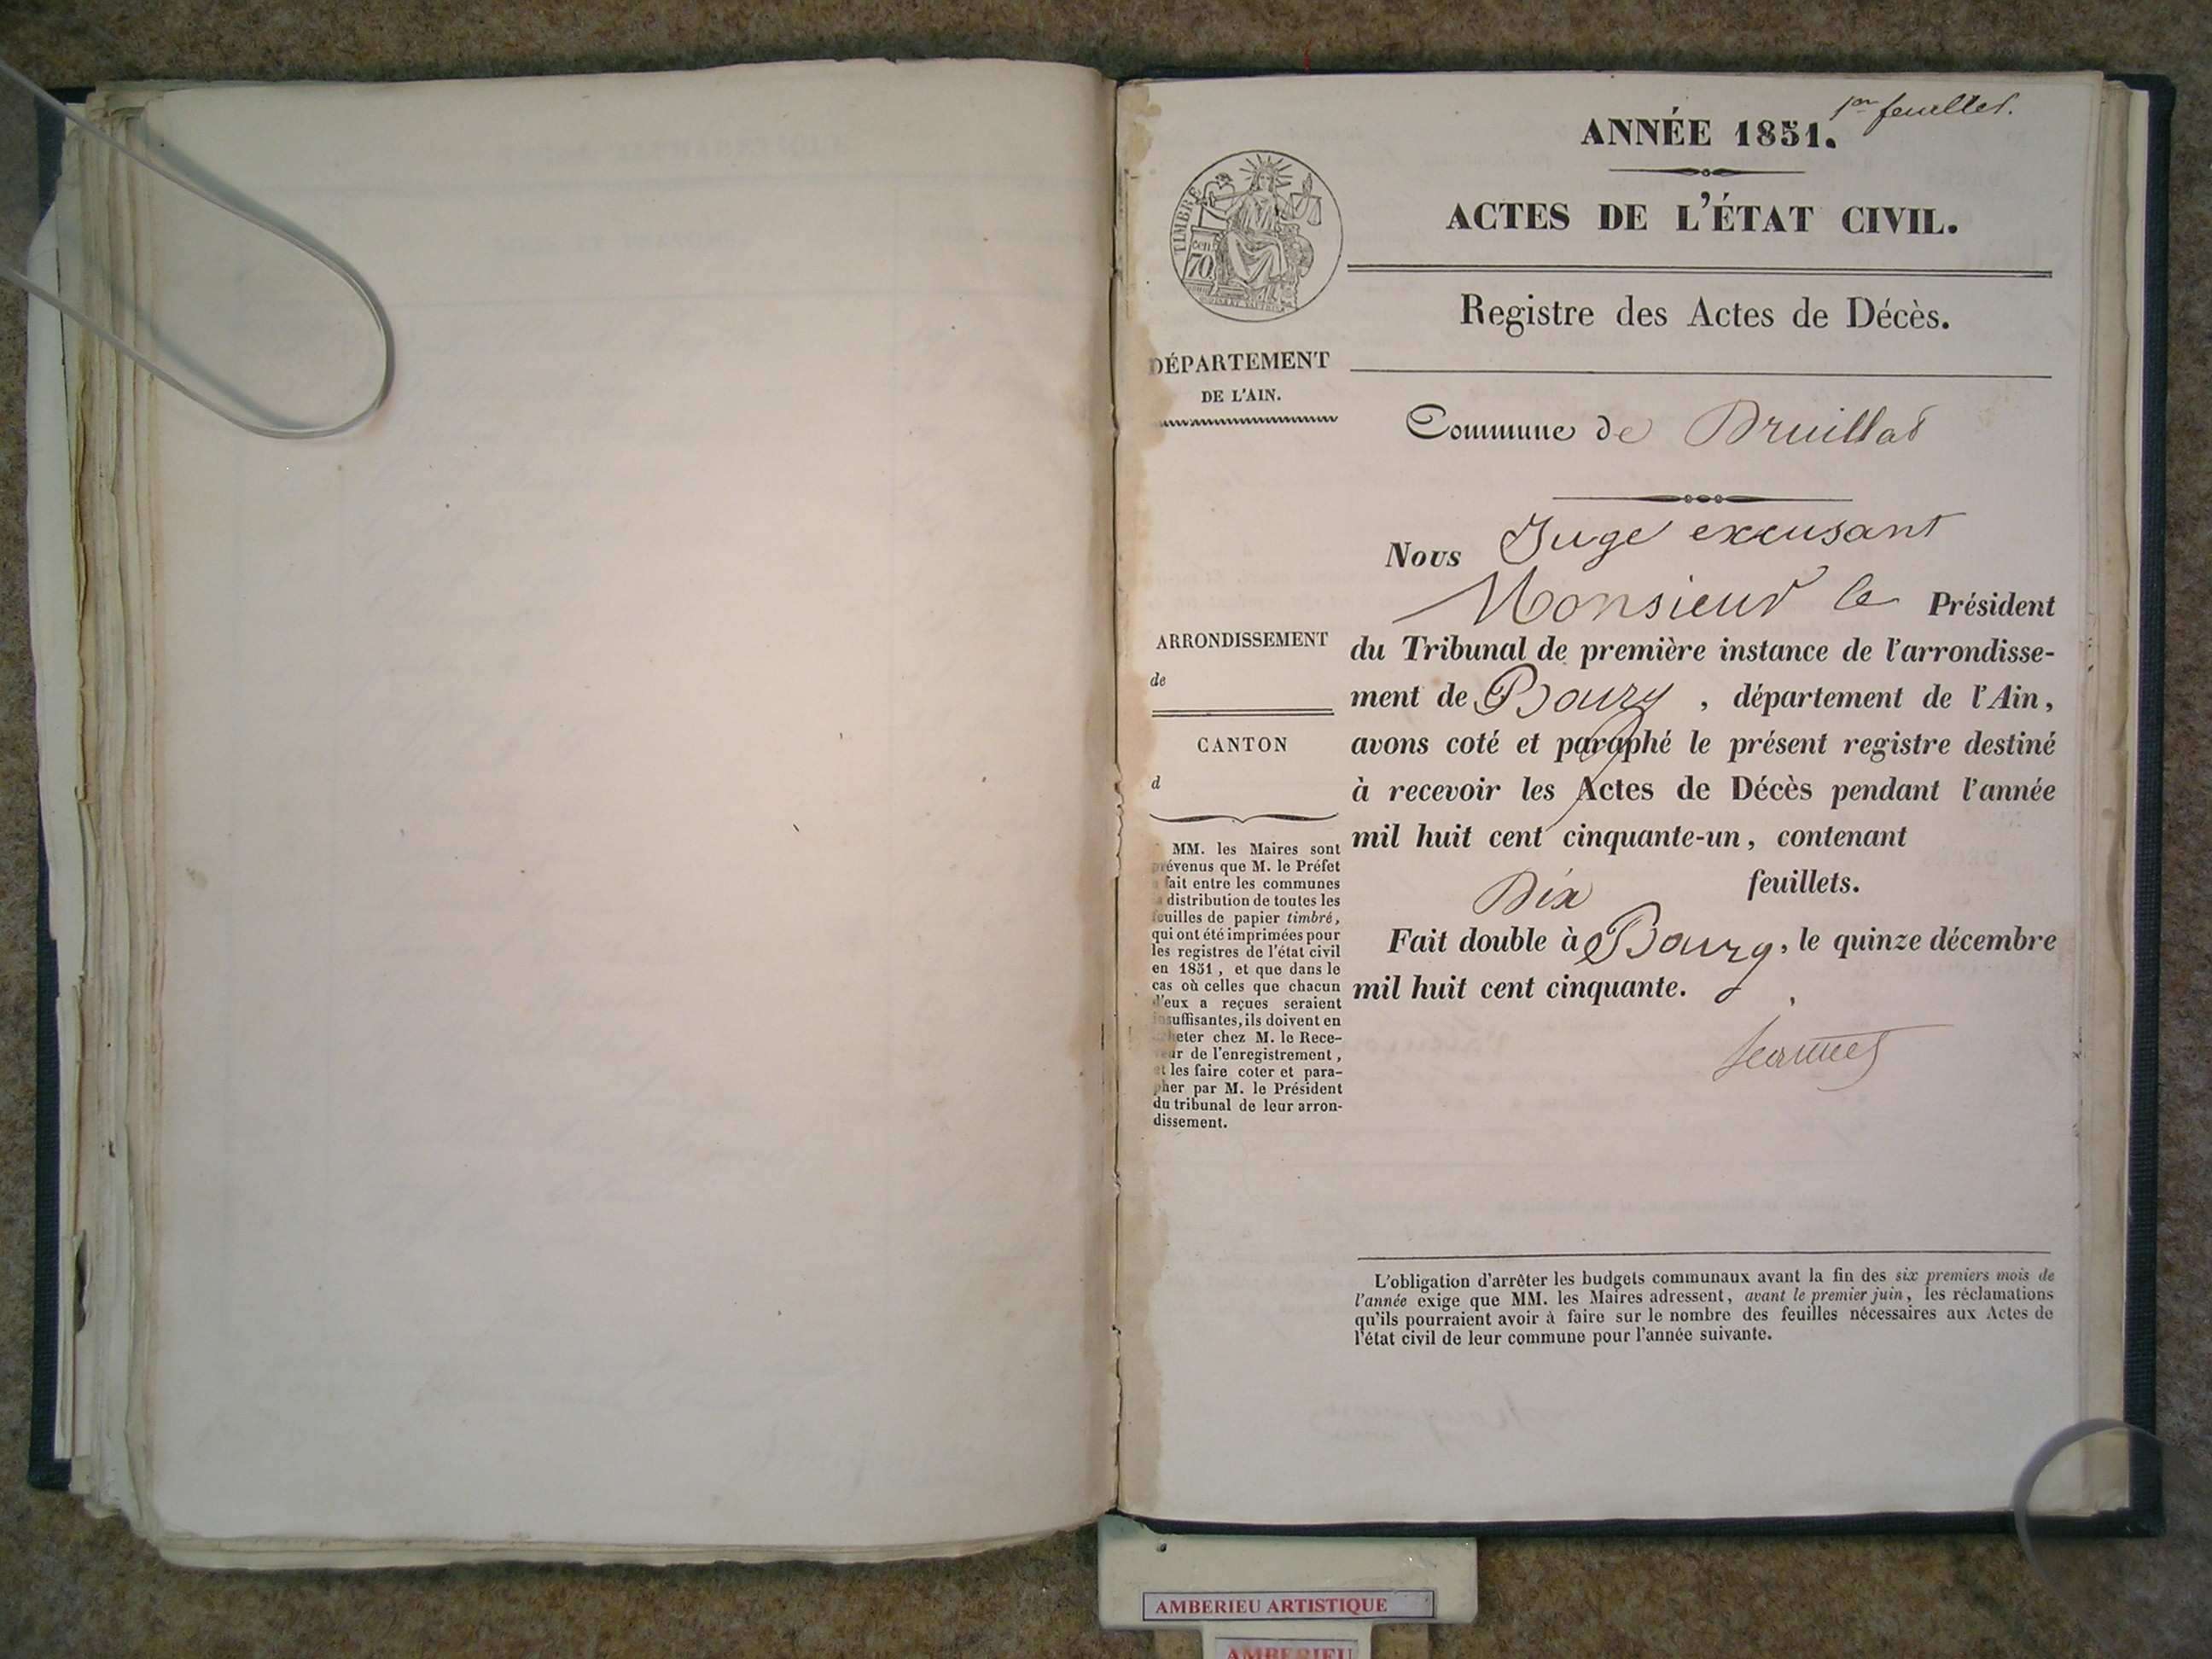 1er feuillet.
ANNÉE 1851.
ACTES DE L'ÉTAT CIVIL.
TIMBRE
cent
70
Registre des Actes de Décès.
DÉPARTEMENT
DE L'AIN.
Commune de Druillat
Nous Juge excusant
Monsieur le Président
du Tribunal de première instance de l'arrondisse-
ment de Bourg, département de l'Ain,
avons coté et paraphé le présent registre destiné
à recevoir les Actes de Décès pendant l'année
mil huit cent cinquante-un, contenant
Dix feuillets.
Fait double à Bourg, le quinze décembre
mil huit cent cinquante.
ARRONDISSEMENT
de
CANTON
d
MM. les Maires sont
prévenus que M. le Préfet
a fait entre les communes
la distribution de toutes les
feuilles de papier timbré,
qui ont été imprimées pour
les registres de l'état civil
en 1851, et que dans le
cas où celles que chacun
d'eux a reçues seraient
insuffisantes, ils doivent en
acheter chez M. le Rece-
veur de l'enregistrement,
et les faire coter et para-
pher par M. le Président
du tribunal de leur arron-
dissement.
L'obligation d'arrêter les budgets communaux avant la fin des six premiers mois de
l'année exige que MM. les Maires adressent, avant le premier juin, les réclamations
qu'ils pourraient avoir à faire sur le nombre des feuilles nécessaires aux Actes de
l'état civil de leur commune pour l'année suivante.
AMBERIEU ARTISTIQUE
AMBERIEU